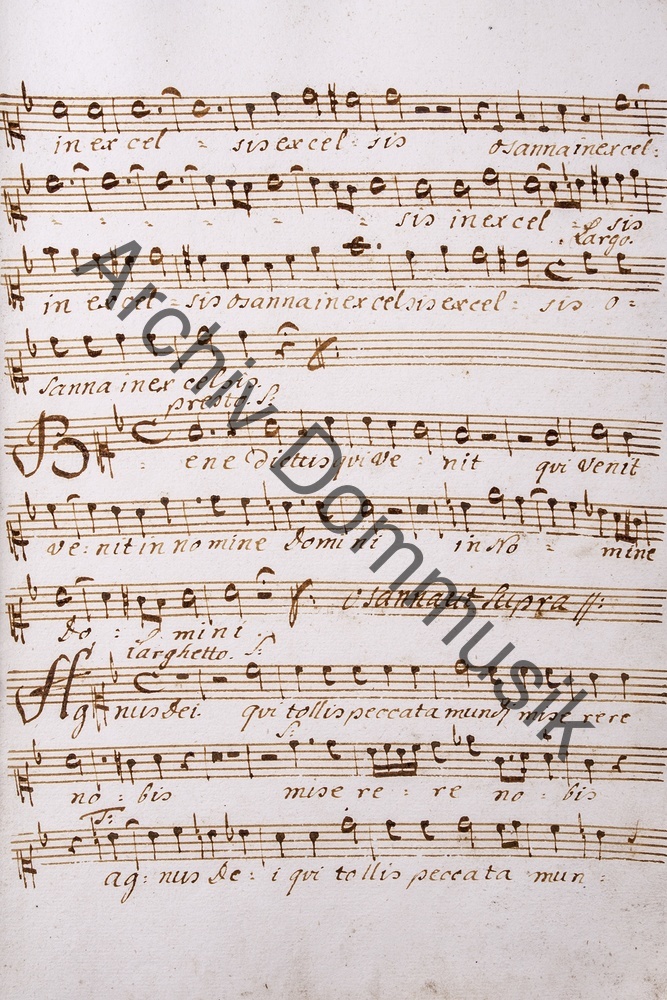 in ex cel - sis ex cel - sis osanna in ex cel:
- - - - - - - sis in ex cel - sis
Largo.
in ex cel - sis osanna in ex celsis ex cel: sis o =
sanna in ex celsis.
presto. S:
Bene dictus qui ve - nit qui venit
ve: nit in nomine Domini in No - mine
Do - - mini osanna ut supra
larghetto. S:
Agnus dei. qui tollis peccata mundi mise rere
no - bis mise re - re no - bis
S:
T:
ag: nus De: i qui tollis peccata mun -
Archiv Dommusik